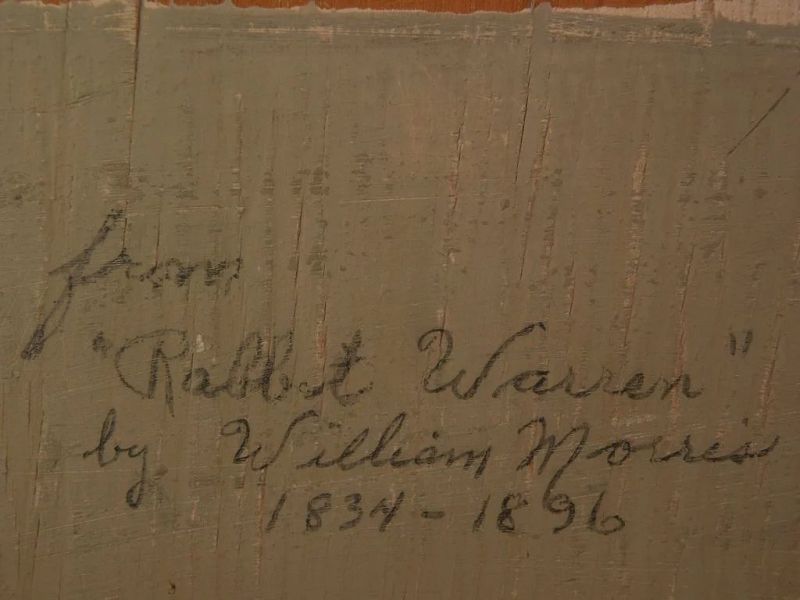 from
"Rabbit Warren"
by William Morris
1834-1896